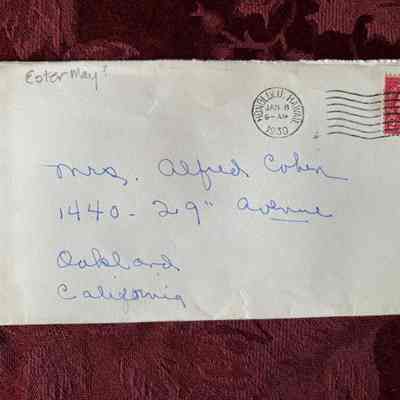 Ester May?
HONOLULU, HAWAII
JAN 8
6-AM
1930
Mrs. Alfred Cohen
1440 - 29" Avenue
Oakland
California